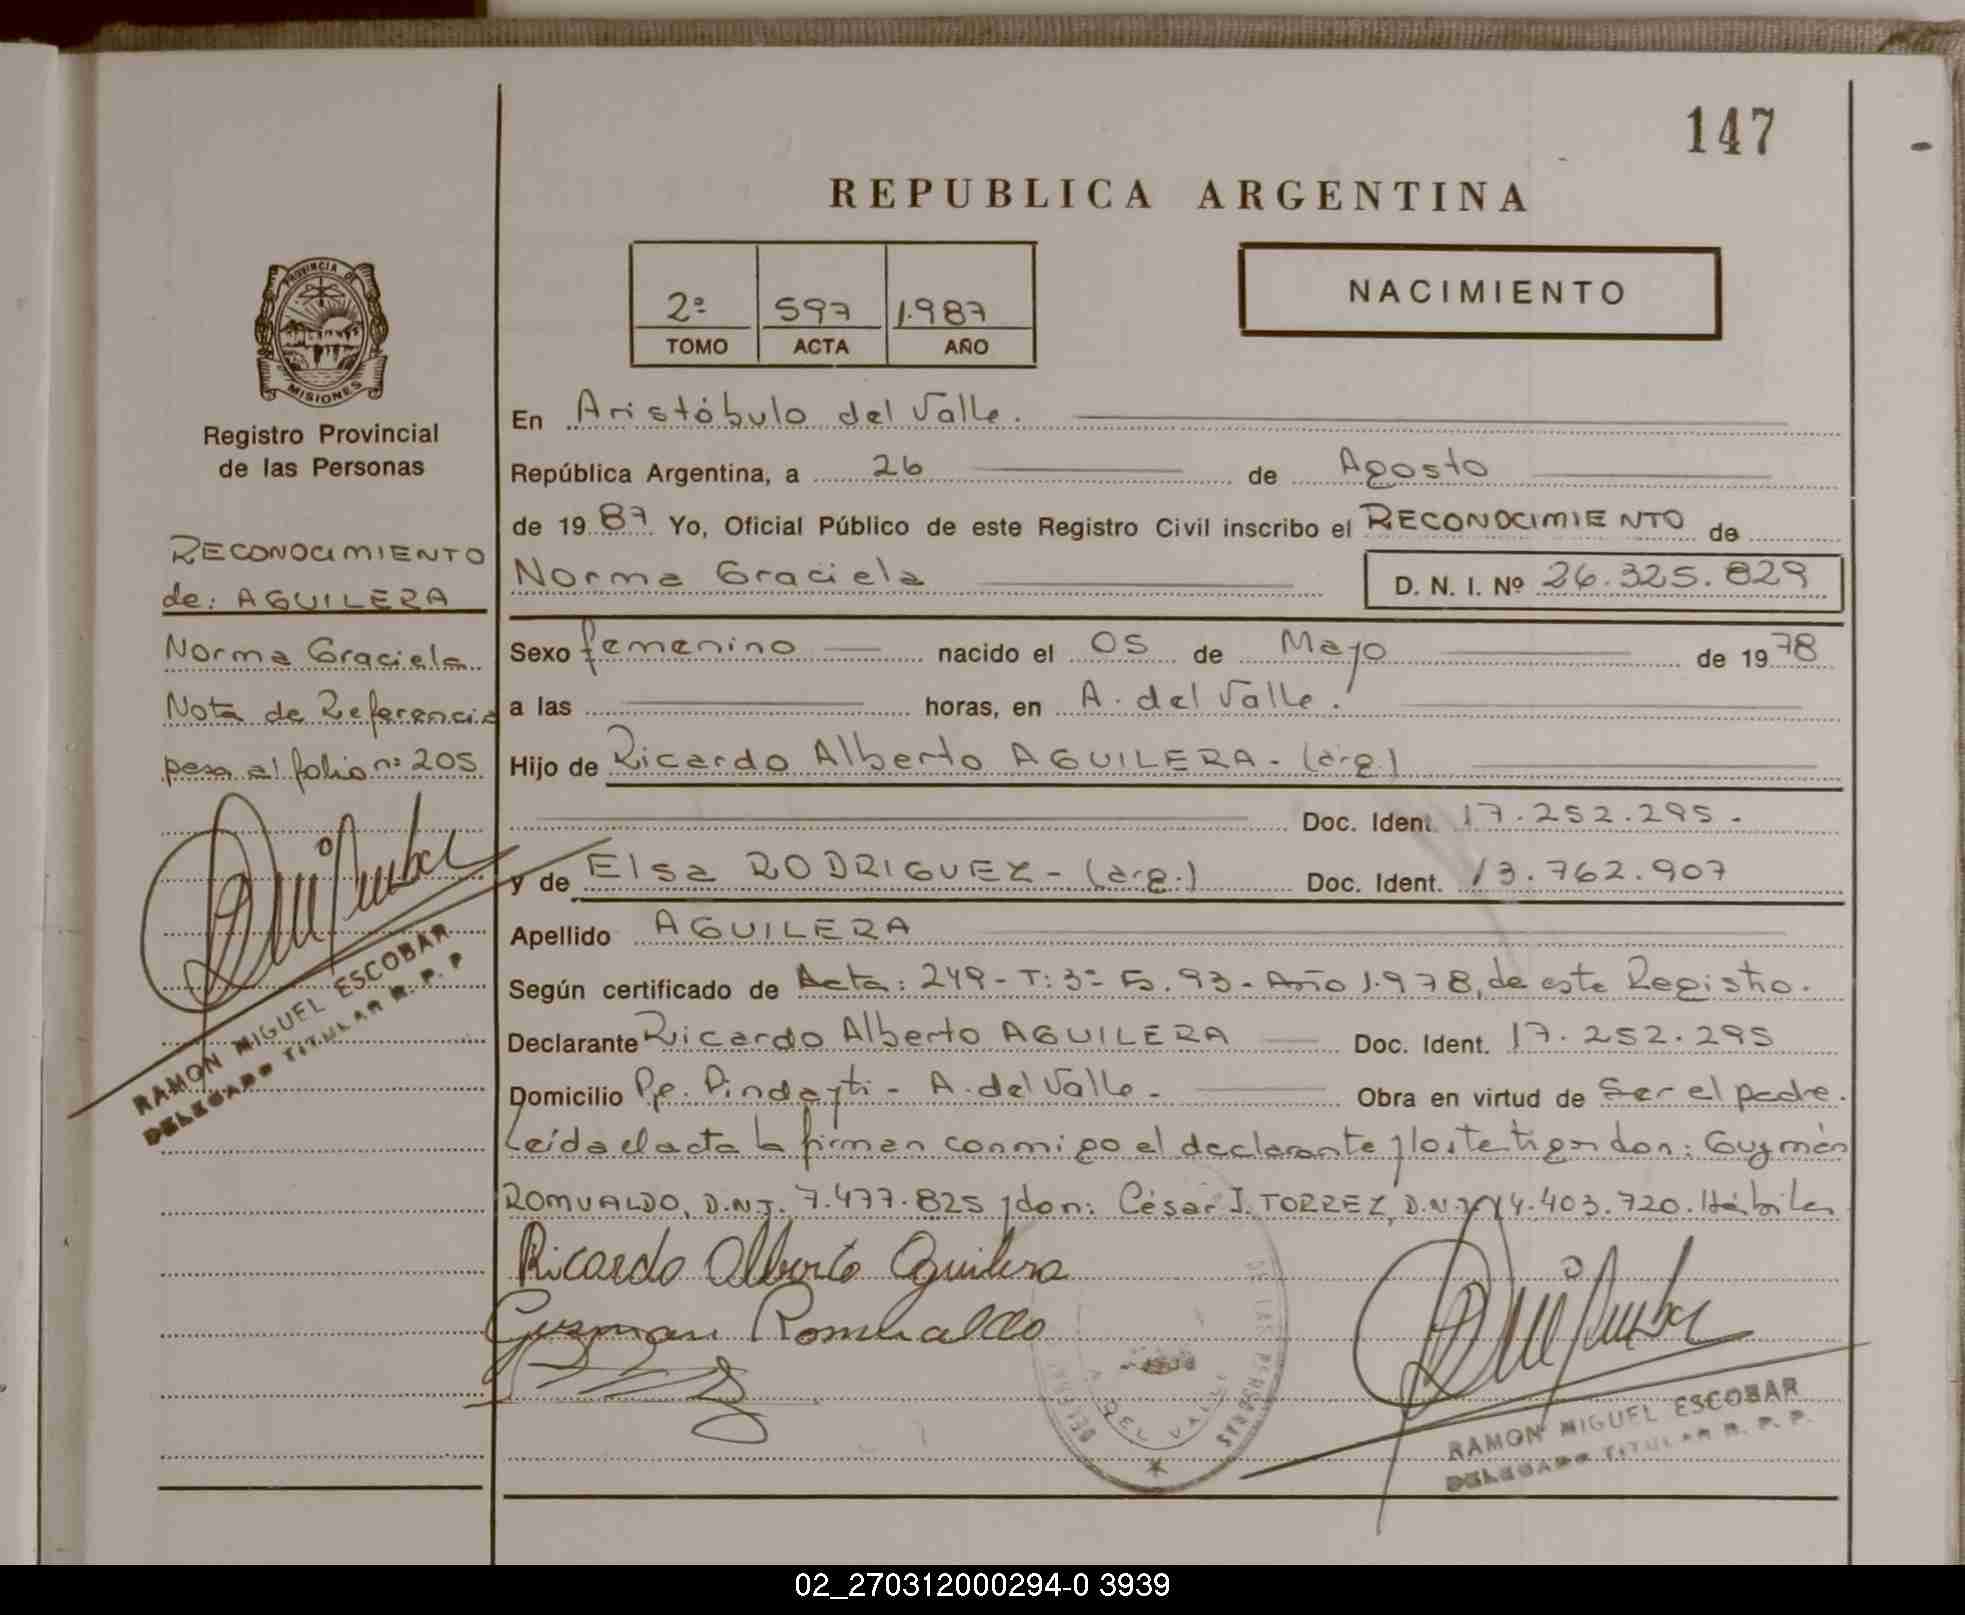 147
REPUBLICA ARGENTINA
2º 597 1.987
TOMO ACTA AÑO
NACIMIENTO
PROVINCIA DE
MISIONES
Registro Provincial
de las Personas
RECONOCIMIENTO
de: AGUILERA
Norma Graciela
Nota de Referencia
pasa al folio nº 205
RAMON MIGUEL ESCOBAR
DELEGADO TITULAR R. P. P
En Aristóbulo del Valle.
República Argentina, a 26 de Agosto
de 19 87 Yo, Oficial Público de este Registro Civil inscribo el RECONOCIMIENTO de
Norma Graciela D. N. I. Nº 26.325.829
Sexo femenino nacido el 05 de Mayo de 19 78
a las horas, en A. del Valle.
Hijo de Ricardo Alberto AGUILERA - (arg.)
Doc. Ident. 17.252.295.
y de Elsa RODRIGUEZ - (arg.) Doc. Ident. 13.762.907
Apellido AGUILERA
Según certificado de Acta: 249 - T: 3º Fº. 93 - Año 1.978, de este Registro.
Declarante Ricardo Alberto AGUILERA Doc. Ident. 17.252.295
Domicilio Pje. Pindayti - A. del Valle - Obra en virtud de ser el padre.
Leída el acta la firman conmigo el declarante y los testigos don: Guzmán
ROMUALDO, D.N.I. 7.477.825 y don: César I. TORREZ, D.N.I. 14.403.720. Hábiles
Ricardo Alberto Aguilera
Guzman Romualdo
DE LAS PERSONAS
A. DEL VALLE
RAMON MIGUEL ESCOBAR
DELEGADO TITULAR R. P. P.
02_270312000294-0 3939